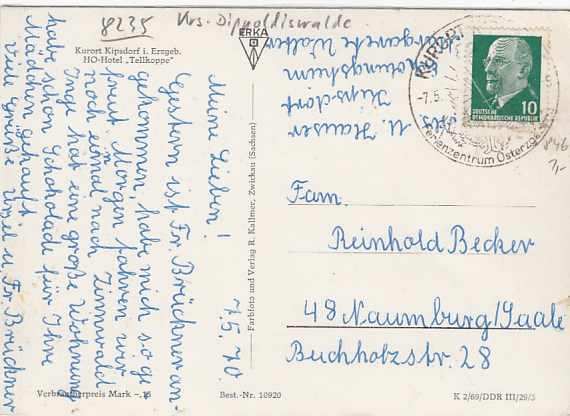 8235 Krs. Dippoldiswalde
Kurort Kipsdorf i. Erzgeb.
HO-Hotel „Tellkoppe“
ERKA
7.5.70.
Meine Lieben!
Gestern ist Fr. Brückner an-
gekommen, habe mich so ge-
freut. Morgen fahren wir
noch einmal nach Zinnwald
Inge hat eine große Wohnung
habe schön Schokolade für Ihre
Mädchen gekauft
Viele Grüße u. Fr. Brückner
M. Hauser
Kipsdorf
Erholungsheim
Margarete
KURORT
-7.5.
Ferienzentrum Osterzgeb
DEUTSCHE
DEMOKRATISCHE REPUBLIK
10
846
7,-
Fam.
Reinhold Becker
48 Naumburg/Saale
Buchholzstr. 28
Farbfoto und Verlag R. Kallmer, Zwickau (Sachsen)
Verbraucherpreis Mark -,15
Best.-Nr. 10920
K 2/69/DDR III/29/3